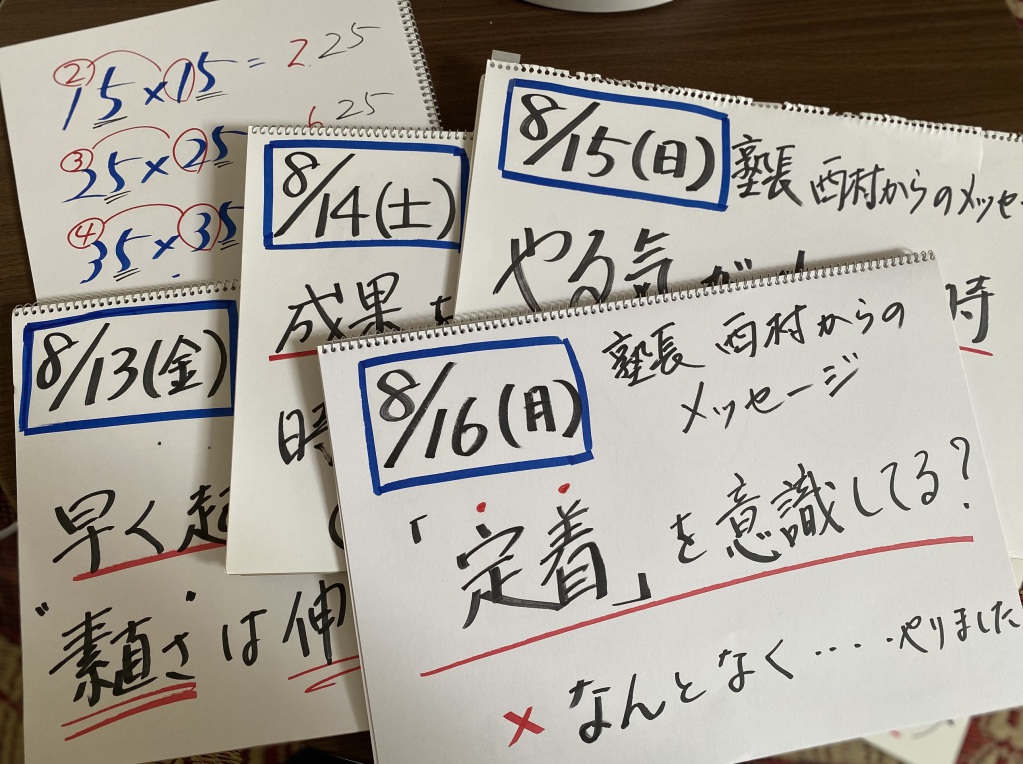 ② 15×15 = 225
③ 25×25 625
④ 35×35
8/15(日)
塾長 西村からのメッセー
やる気が
時
8/14(土)
成果を
時
8/13(金)
早く起
"素直さ"は伸
8/16(月)
塾長 西村からの
メッセージ
「定着」を意識してる?
× なんとなく‥‥やりました